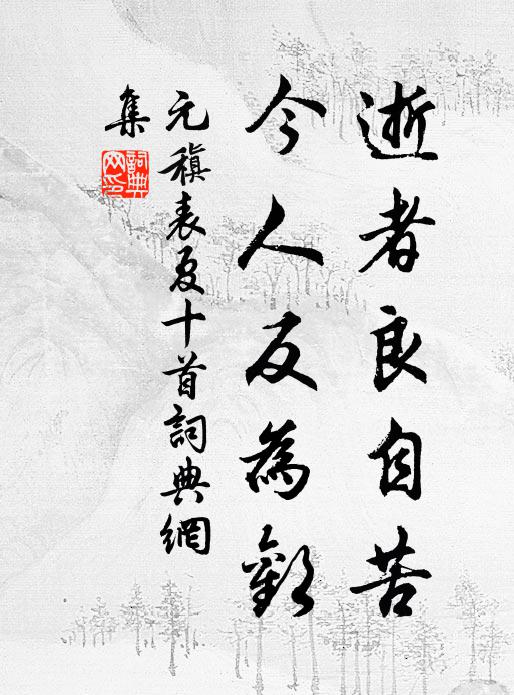 逝者良自苦
今人反為歡
元稹表夏十首詞典網
集
詞典
网印